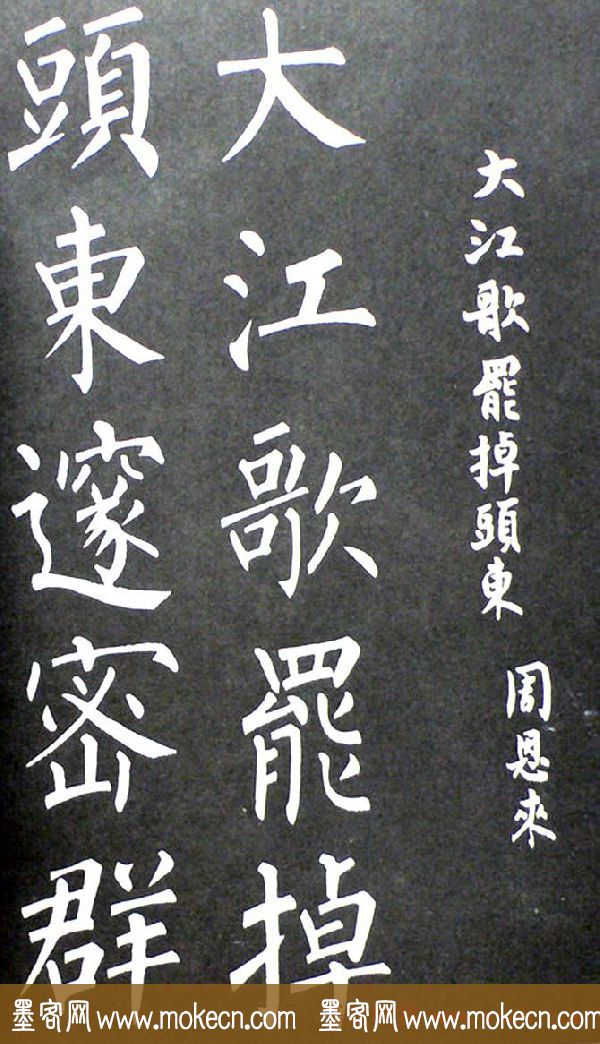 大江歌罷掉頭東
周恩來
大江歌罷掉
頭東邃密群
墨客网 www.mokecn.com 墨客网 www.mokecn.com